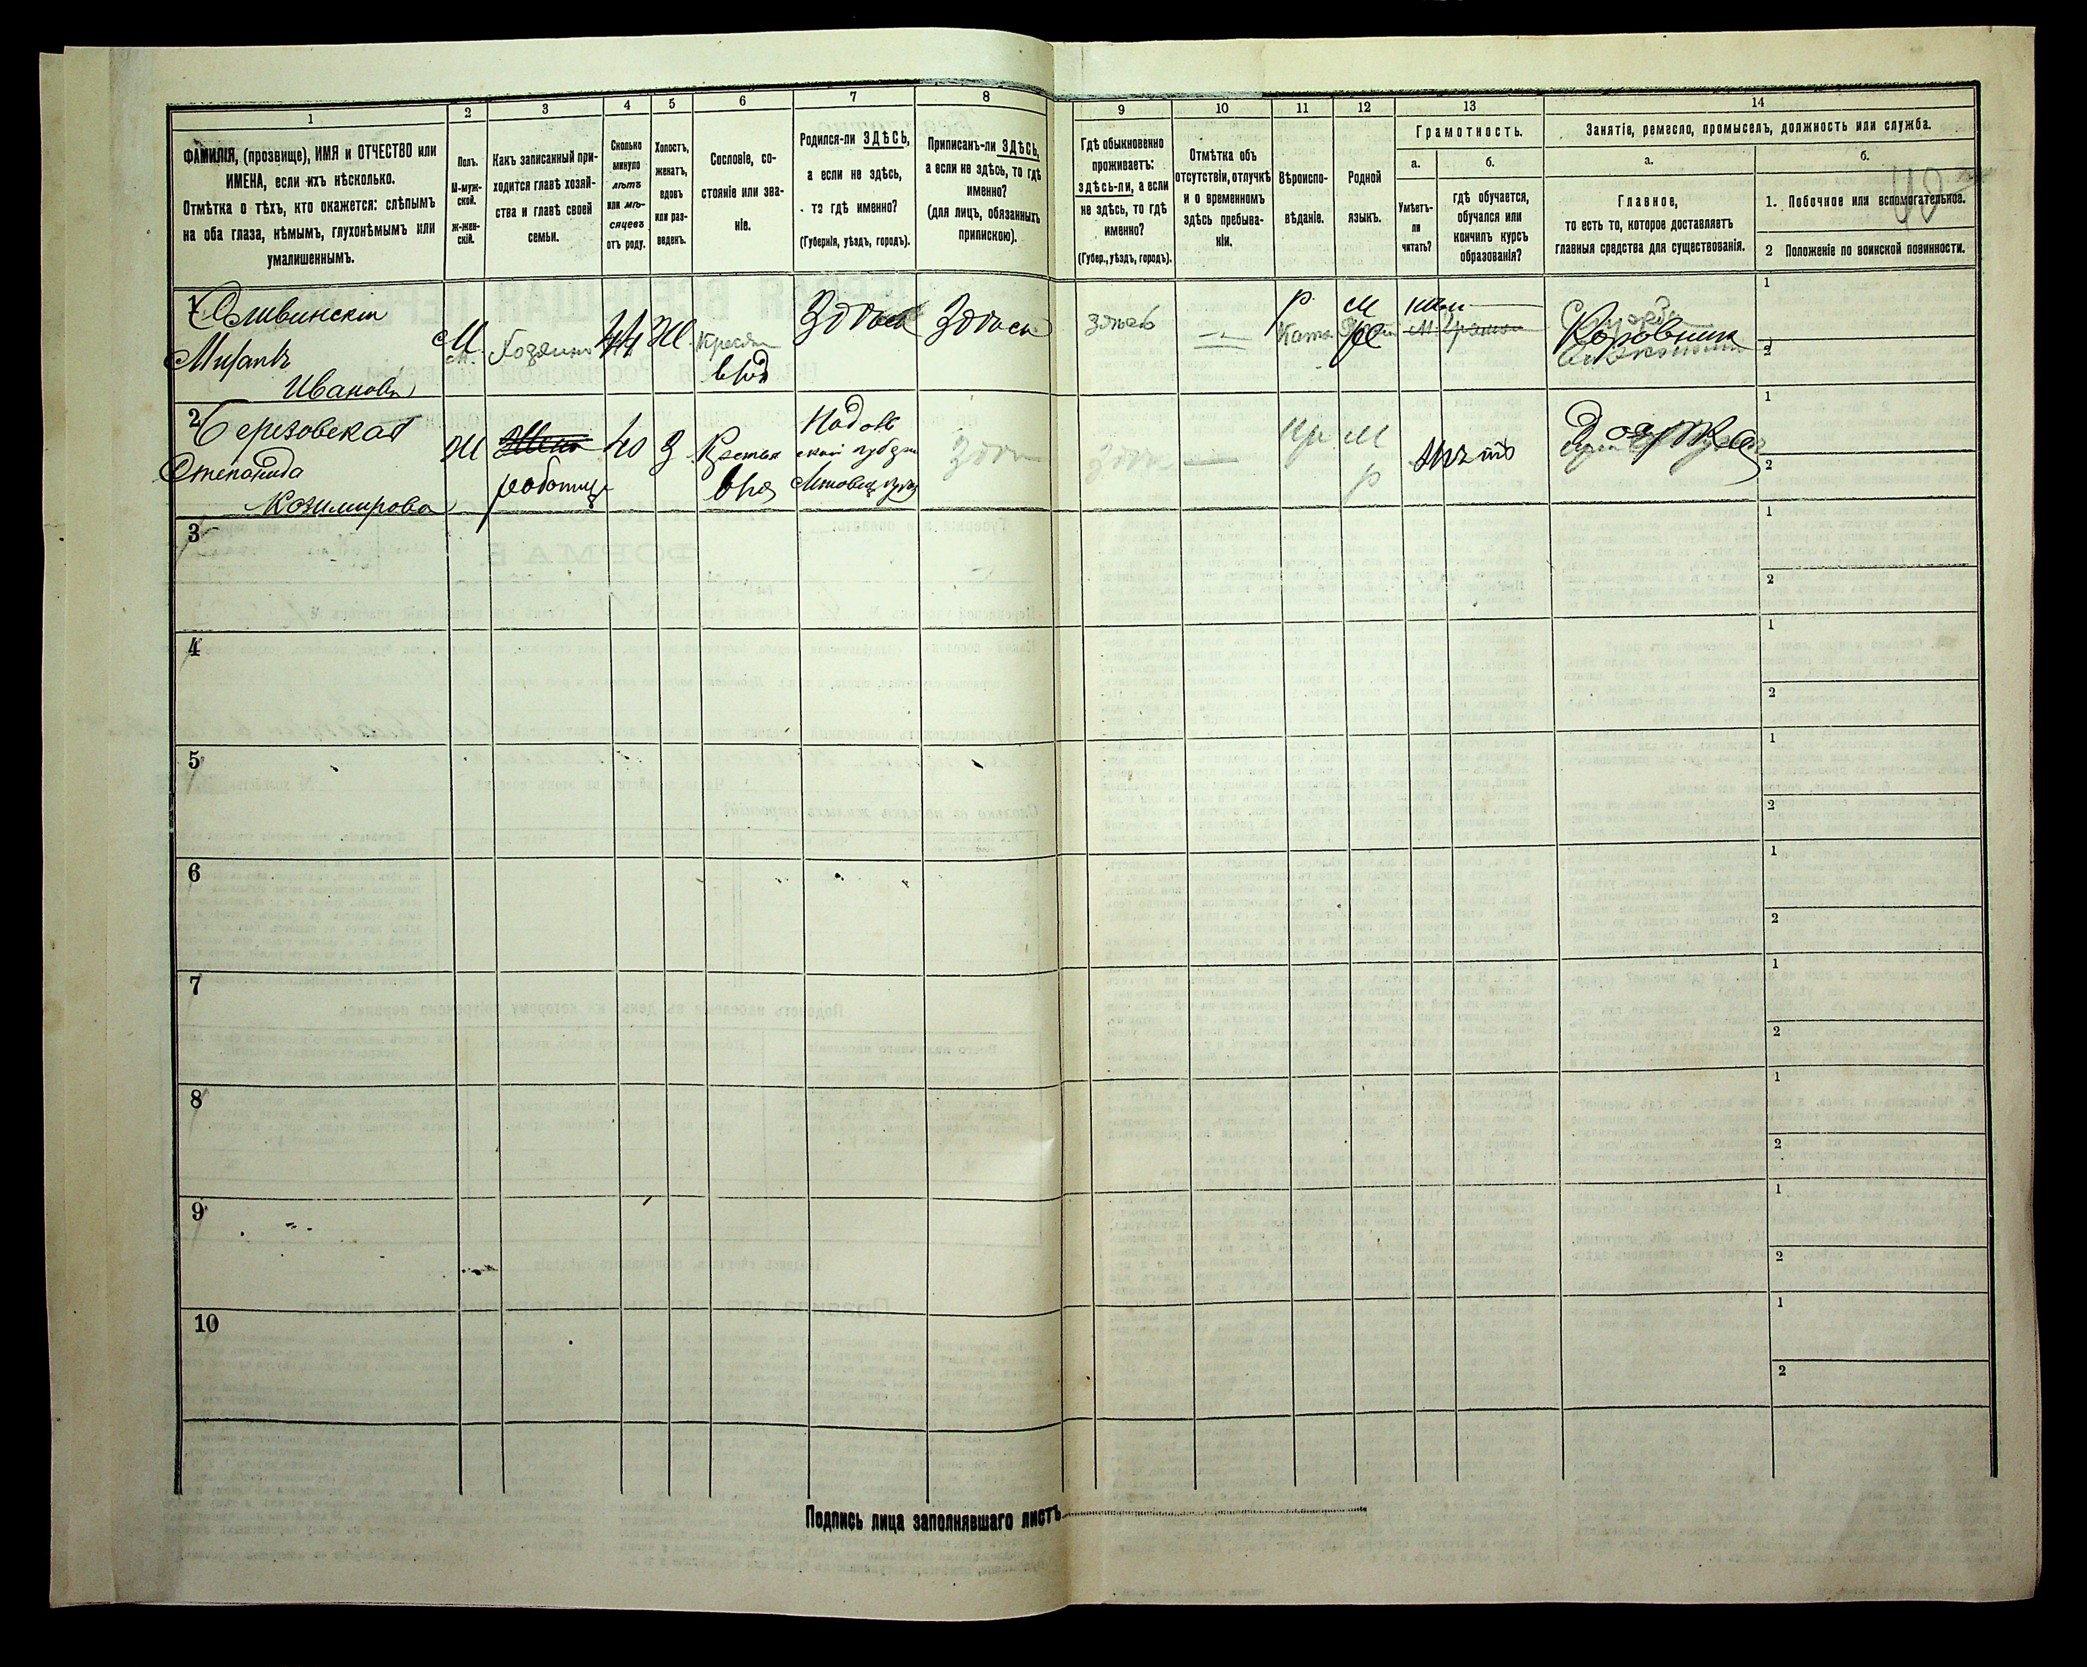 1
2
3
4
5
6
7
8
9
10
11
12
13
14
ФАМИЛІЯ, (прозвище), ИМЯ и ОТЧЕСТВО или
ИМЕНА, если ихъ нѣсколько.
Отмѣтка о тѣхъ, кто окажется: слѣпымъ
на оба глаза, нѣмымъ, глухонѣмымъ или
умалишеннымъ.
Полъ.
М-муж-
ской.
ж-жен-
скій.
Какъ записанный при-
ходится главѣ хозяй-
ства и главѣ своей
семьи.
Сколько
минуло
лѣтъ
или мѣ-
сяцевъ
отъ роду.
Холостъ,
женатъ,
вдовъ
или раз-
веденъ.
Сословіе, со-
стояніе или зва-
ніе.
Родился-ли ЗДѢСЬ,
а если не здѣсь,
то гдѣ именно?
(Губернія, уѣздъ, городъ).
Приписанъ-ли ЗДѢСЬ,
а если не здѣсь, то гдѣ
именно?
(для лицъ, обязанныхъ
припискою).
Гдѣ обыкновенно
проживаетъ:
здѣсь-ли, а если
не здѣсь, то гдѣ
именно?
(Губер., уѣздъ, городъ).
Отмѣтка объ
отсутствіи, отлучкѣ
и о временномъ
здѣсь пребыва-
ніи.
Вѣроиспо-
вѣданіе.
Родной
языкъ.
Грамотность.
а.
б.
Умѣетъ-
ли
читать?
гдѣ обучается,
обучался или
кончилъ курсъ
образованія?
Занятіе, ремесло, промыселъ, должность или служба.
а.
б.
Главное,
то есть то, которое доставляетъ
главныя средства для существованія.
1. Побочное или вспомогательное.
2 Положеніе по воинской повинности.
40
1
Сливинскій
Ивановъ
М
44
Ж
Крестьян
Здѣсь
Здѣсь
здѣсь
р.
Като
М
1
2
2
Березовская
Степанида
Козимирова
Ж
Жена
работница
40
Подоль
ской губерн
Здѣсь
Здѣсь
М
р
нѣтъ
1
2
3
1
2
4
1
2
5
1
2
6
1
2
7
1
2
8
1
2
9
1
2
10
1
2
Подпись лица заполнявшаго листъ